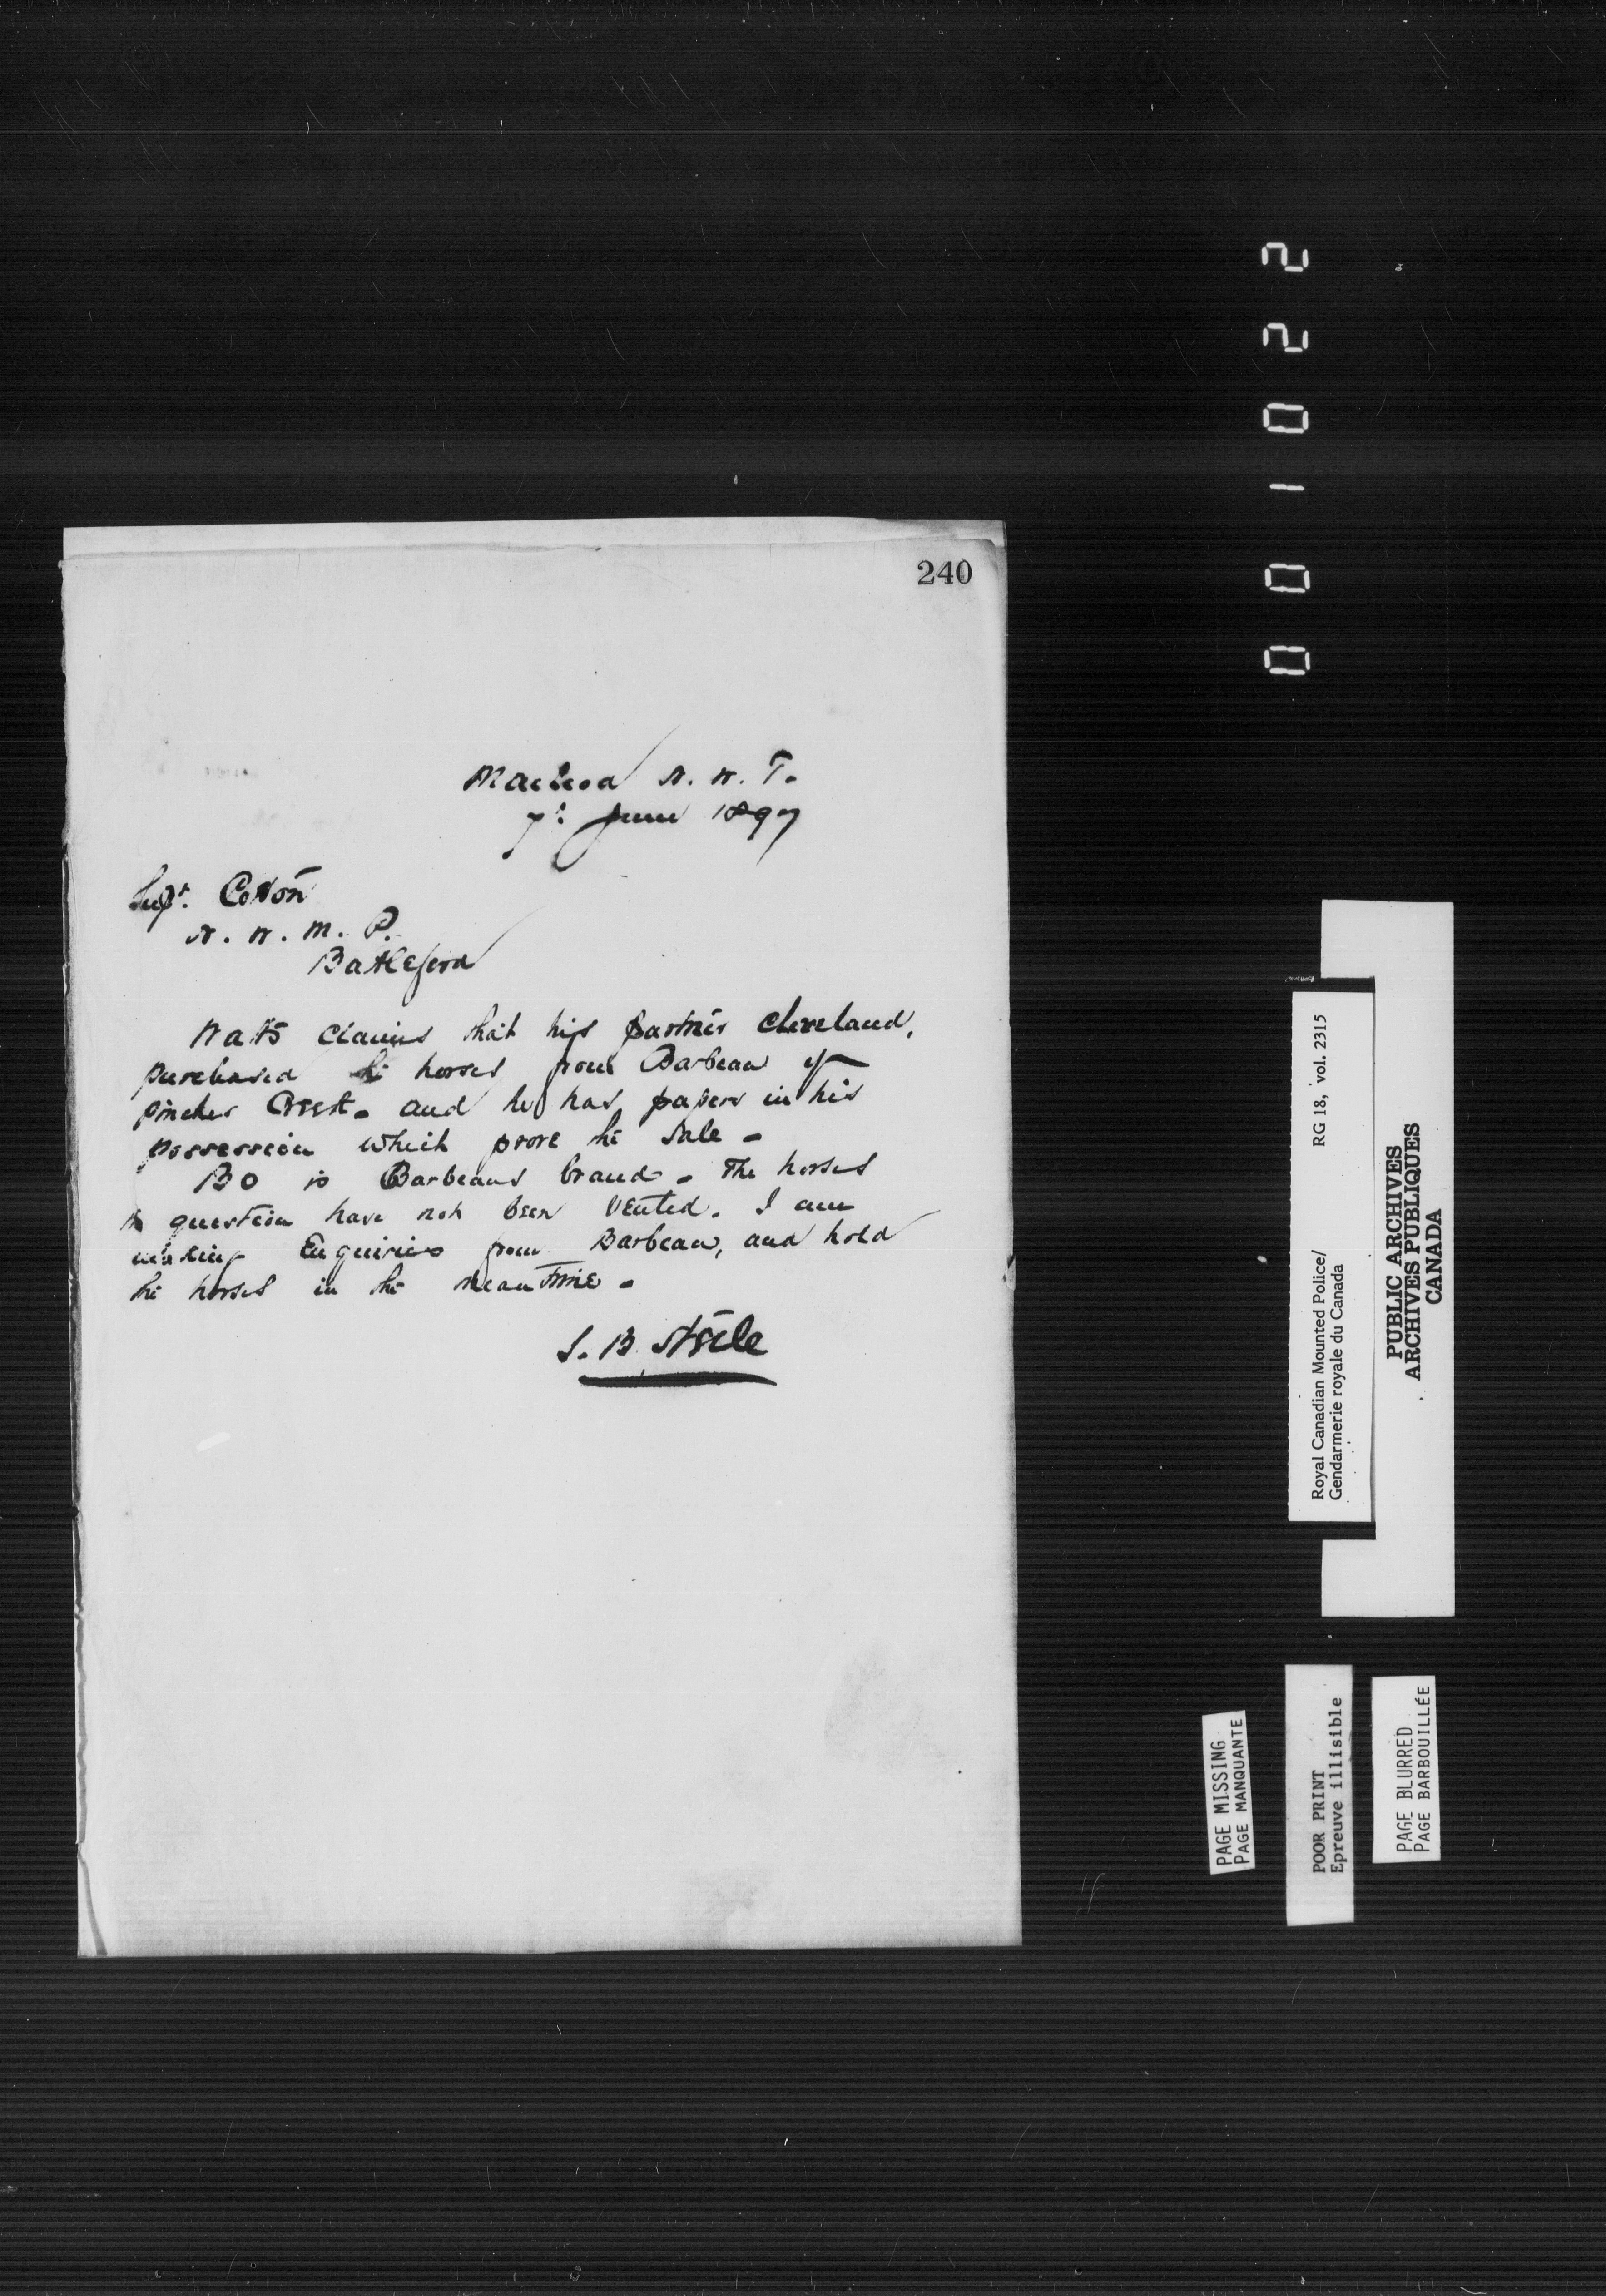 240
Macleod N. W. T.
7th June 1897
Supt. Cotton
N. W. M. P.
Battleford
Watts claims that his partner Cleveland,
purchased the horses from Barbeau of
Pincher Creek. and he has papers in his
possession which prove the sale -
BO is Barbeaus brand - The horses
in question have not been vented. I am
making Enquiries from Barbeau, and hold
the horses in the meantime -
S. B. Steele
001022
Royal Canadian Mounted Police/ RG 18, vol. 2315
Gendarmerie royale du Canada
PUBLIC ARCHIVES
ARCHIVES PUBLIQUES
CANADA
PAGE MISSING
PAGE MANQUANTE
POOR PRINT
Epreuve illisible
PAGE BLURRED
PAGE BARBOUILLÉE